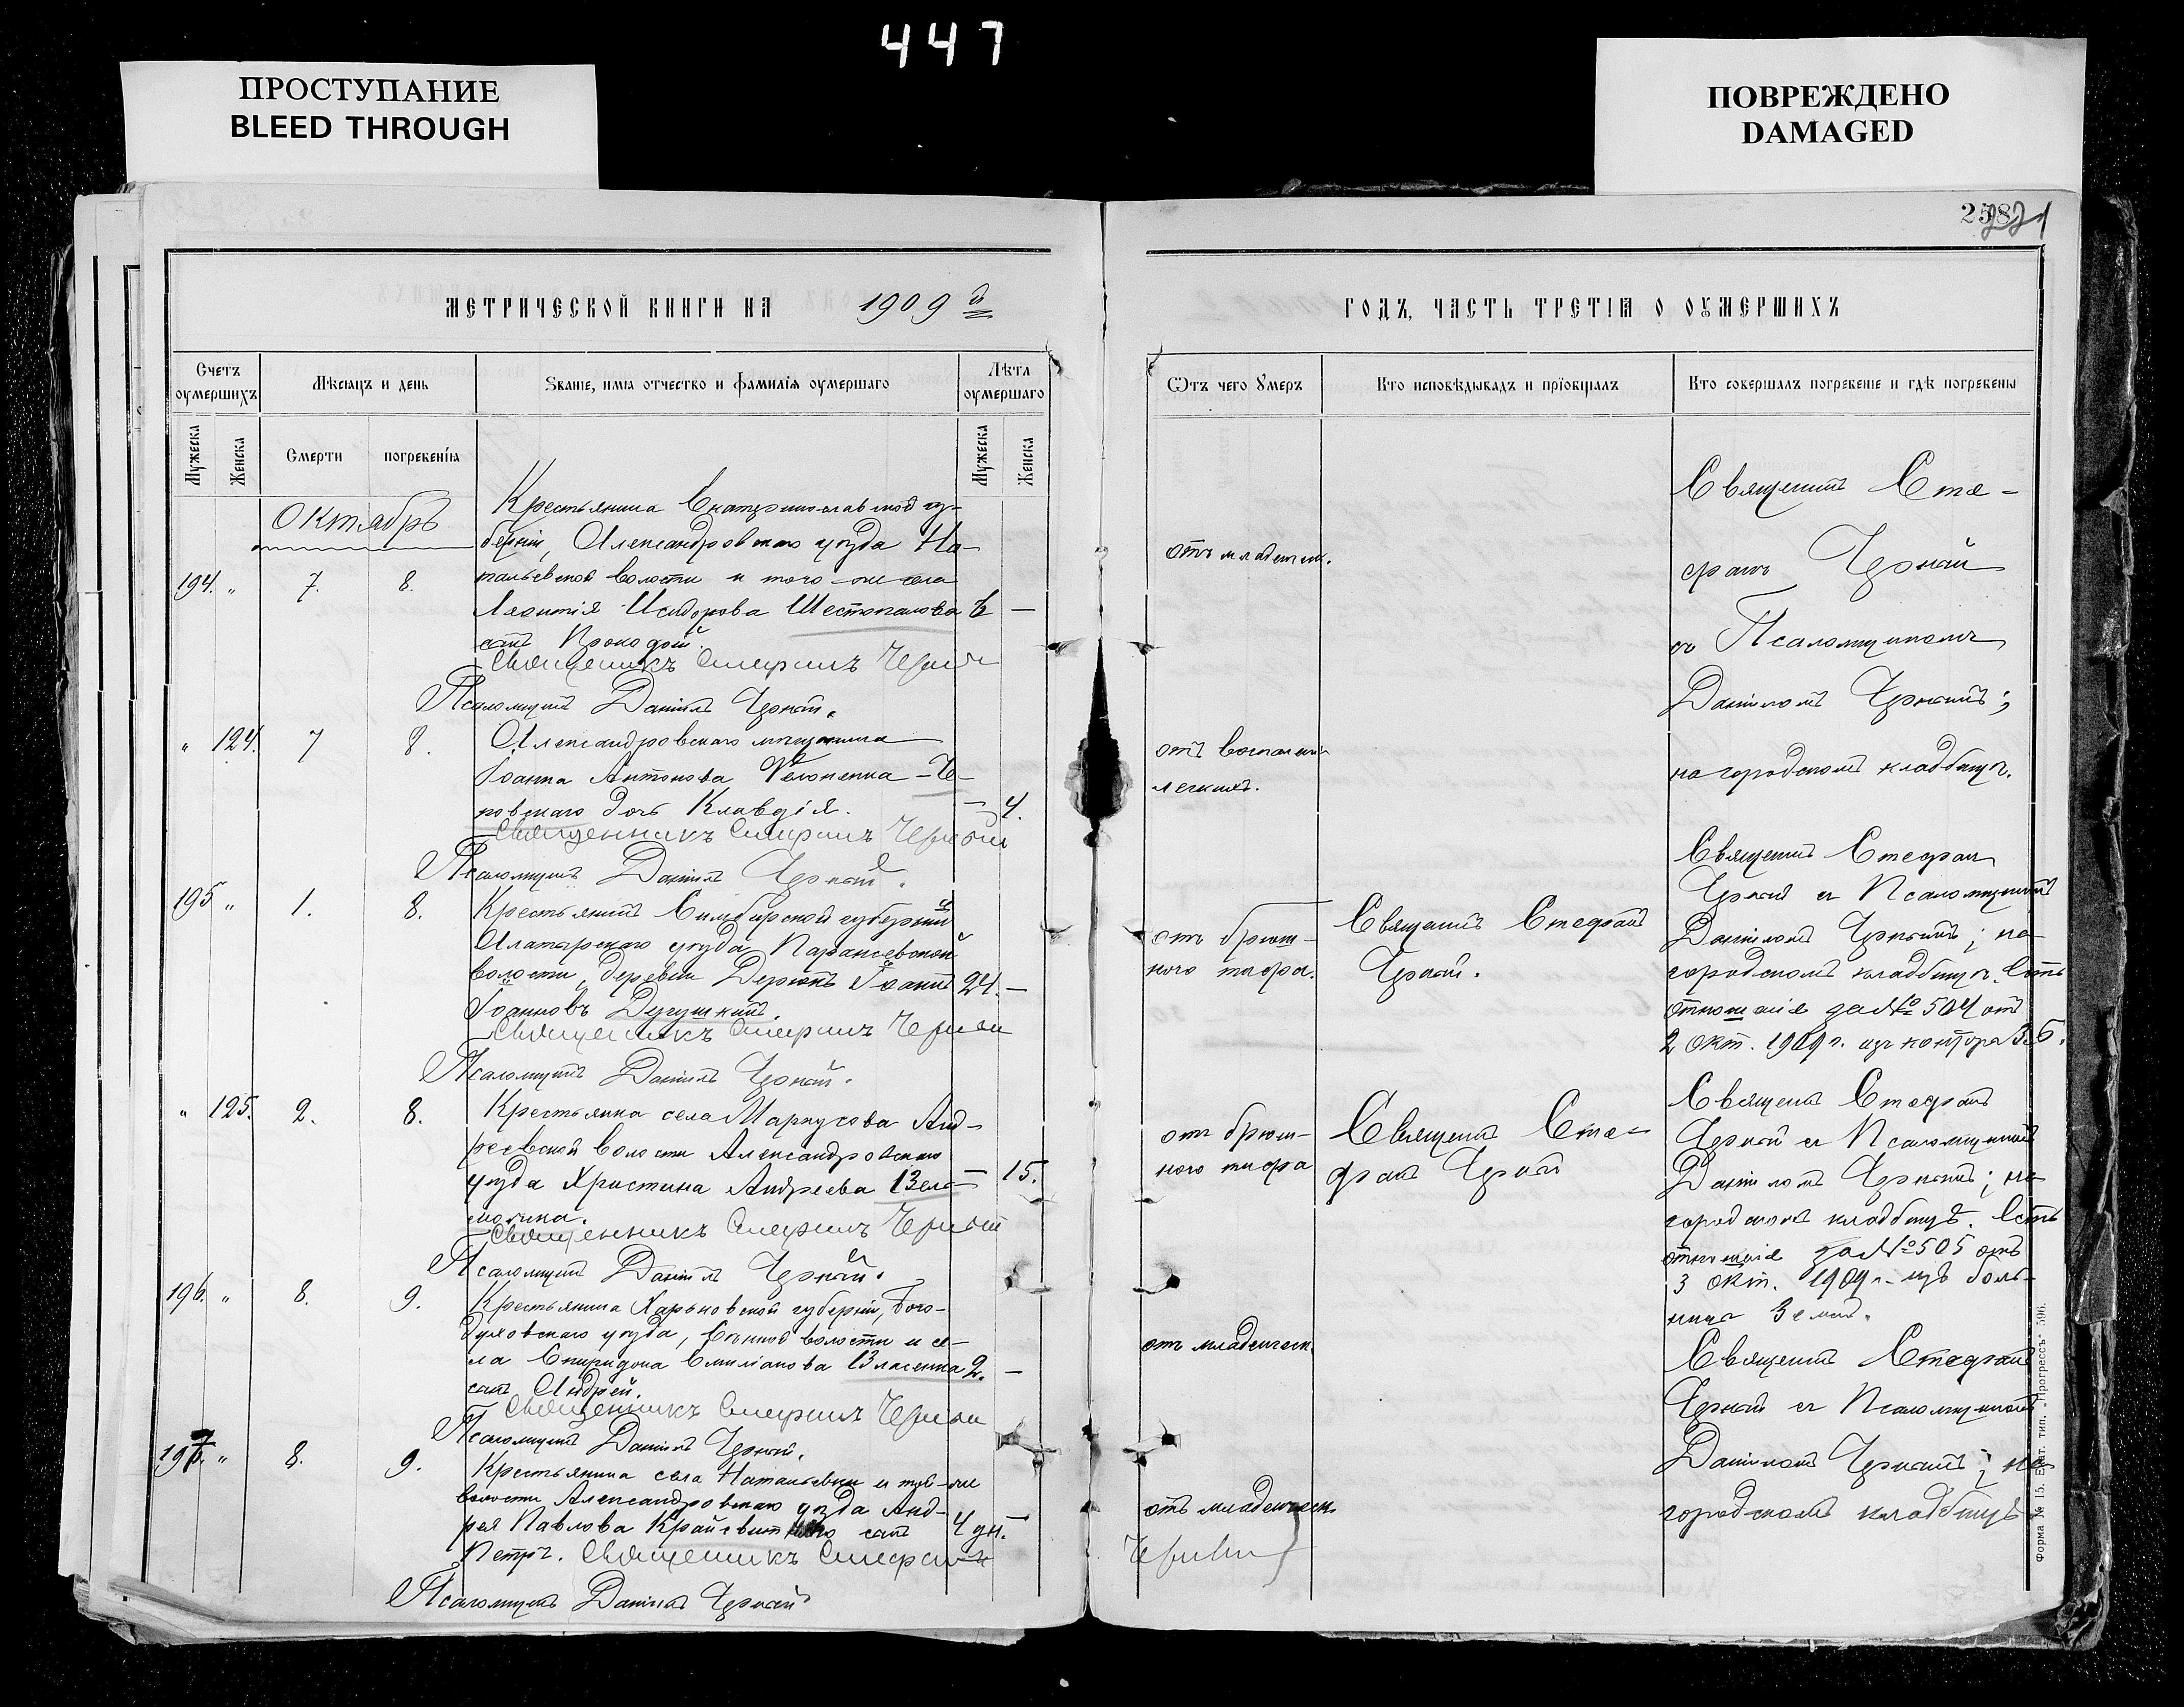 447
ПРОСТУПАНИЕ
BLEED THROUGH
ПОВРЕЖДЕНО
DAMAGED
МЕТРИЧЕСКОЙ КНИГИ НА 1909 й
Счетъ оумершихъ
Мѣсяцъ и день
Званіе, имя отчество и фамилія оумершаго
Лѣта оумершаго
Мужеска
Женска
Смерти
погребенія
Мужеска
Женска
Октябрь
Крестьянина Екатеринославской гу-
берніи, Александровскаго уѣзда На-
194. " 7. 8. тальевской волости и того-же села
Леонтія Исидорова Шестопалова 6 —
сынъ
Священникъ Стефанъ Черный
Псаломщикъ Даніилъ Черный.
" 124. 7 8. Александровскаго мѣщанина
Іоанна Антонова
ровскаго дочь Клавдія. — 4.
Священникъ Стефанъ Черный
Псаломщикъ Даніилъ Черный.
195 " 1. 8. Крестьянинъ Симбирской губерніи
Алатырскаго уѣзда
волости, деревни Іоаннъ 24. —
Іоанновъ
Священникъ Стефанъ Черный
Псаломщикъ Даніилъ Черный.
" 125. 2. 8. Крестьянка села Маркусова Анд-
реевской волости Александровскаго
уѣзда Христина Андреева — 15.
Священникъ Стефанъ Черный
Псаломщикъ Даніилъ Черный.
196. " 8. 9. Крестьянина Харьковской губерніи, Бого-
духовскаго уѣзда, волости и се-
ла Спиридона Емиліанова Власенка 2. —
сынъ Андрей.
Священникъ Стефанъ Черный
Псаломщикъ Даніилъ Черный.
197. " 8. 9. Крестьянина села Натальевки и той-же
волости Александровскаго уѣзда Анд-
рея Павлова сынъ 4 дн. —
Петръ. Священникъ Стефанъ
Псаломщикъ Даніилъ Черный
ГОДЪ, ЧАСТЬ ТРЕТІЯ О ОУМЕРШИХЪ
Отъ чего умеръ
Кто исповѣдывалъ и пріобщалъ
Кто совершалъ погребеніе и гдѣ погребены
отъ младенческ.
Священникъ Сте-
фанъ Черный
съ Псаломщикомъ
Даніиломъ Чернымъ;
на городскомъ кладбищѣ.
отъ воспаленія
легкихъ.
Священникъ Стефанъ
Черный съ Псаломщикомъ
Даніиломъ Чернымъ; на
городскомъ кладбищѣ. Есть
отношеніе за № 504 отъ
2 окт. 1909 г. изъ
отъ брюш-
ного тифа.
Священникъ Стефанъ
Черный.
отъ брюш-
ного тифа
Священникъ Сте-
фанъ Черный
Священникъ Стефанъ
Черный съ Псаломщикомъ
Даніиломъ Чернымъ; на
городскомъ кладбищѣ. Есть
отношеніе за № 505 отъ
3 окт. 1909 г. изъ боль-
ницы Земск.
отъ младенческ.
Священникъ Стефанъ
Черный съ Псаломщикомъ
Даніиломъ Чернымъ; на
городскомъ кладбищѣ
отъ младенческ.
Черный
Форма № 15. Екат. тип. „Прогрессъ" 596.